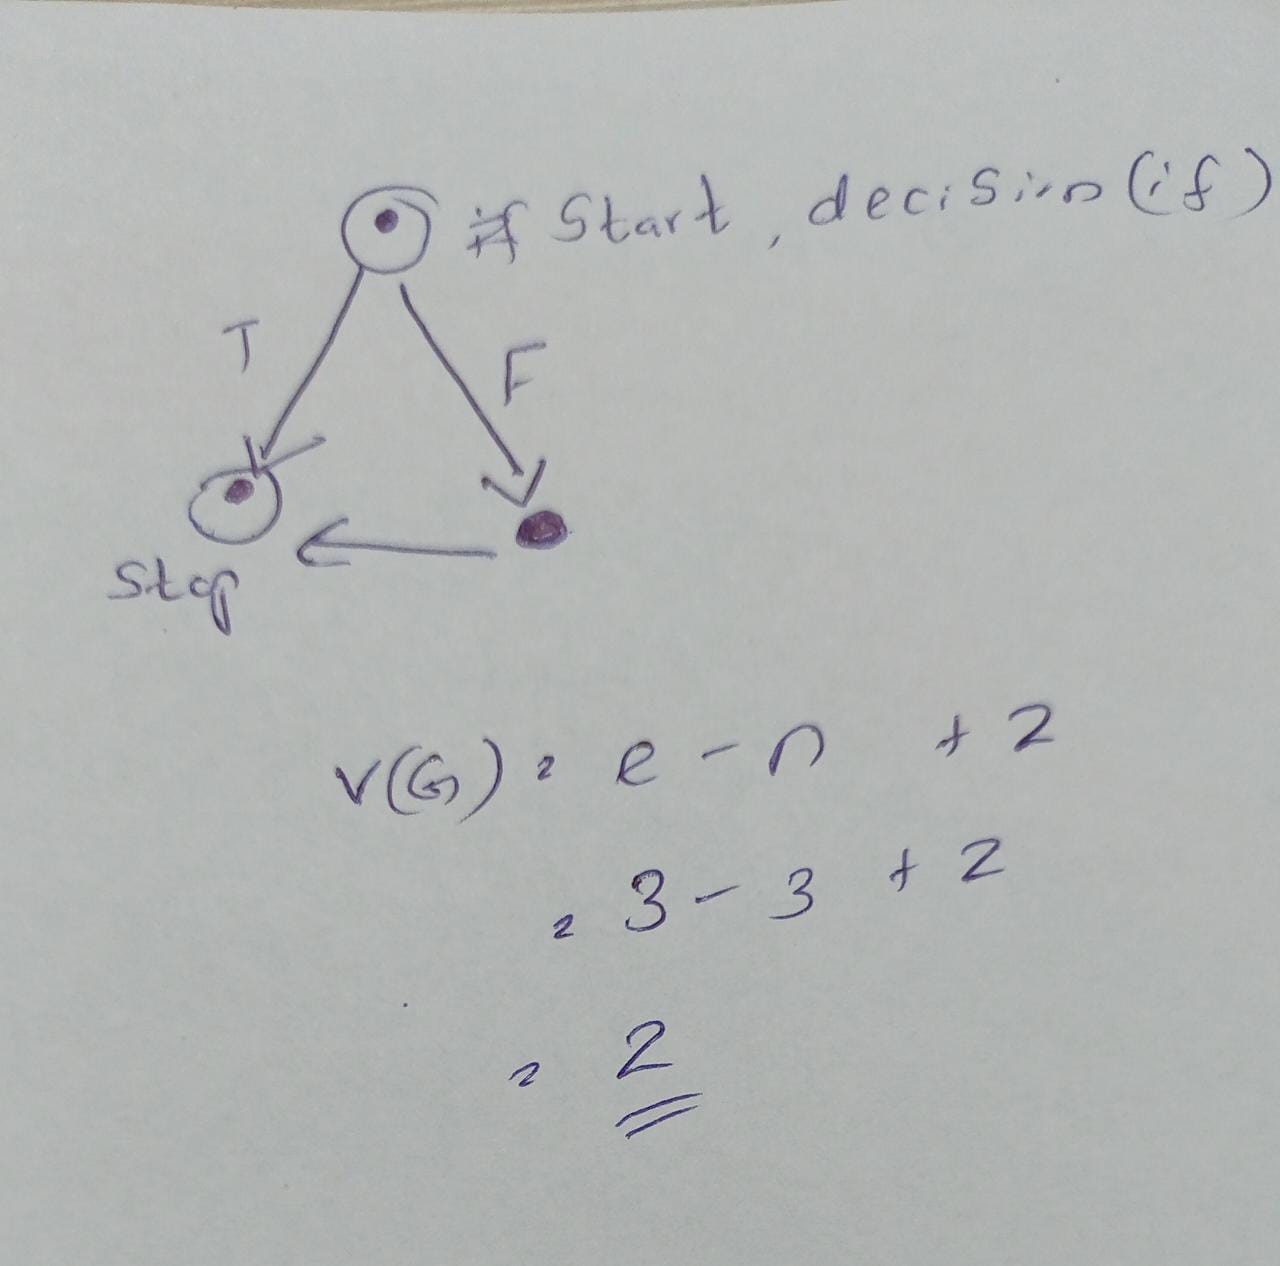 Start, decision (if)
T
F
Stop
V(G) = e - n + 2
= 3 - 3 + 2
= 2